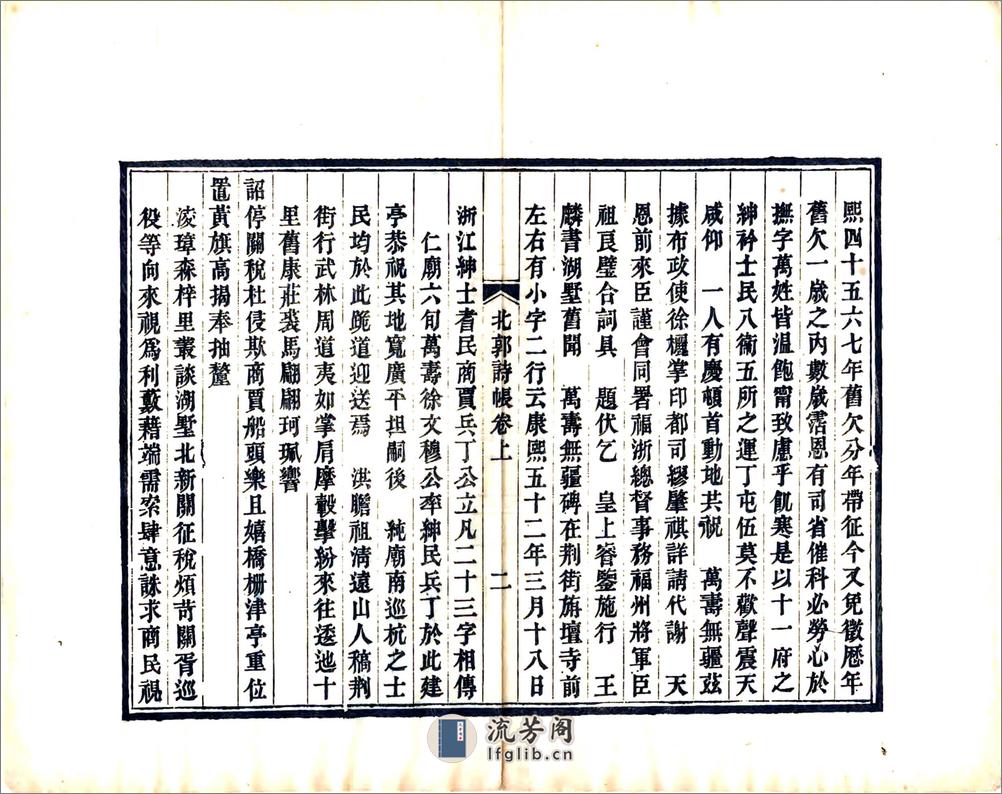 熙四十五六七年舊欠分年帶征今又免徵曆年
舊欠一歲之內數歲霑恩有司省催科必勞心於
撫字萬姓皆温飽甯致慮乎飢寒是以十一府之
紳衿士民八衞五所之運丁屯伍莫不歡聲震天
咸仰　一人有慶頓首動地共祝　萬壽無疆茲
據布政使徐櫃掌印都司繆肇祺詳請代謝　天
恩前來臣謹會同署福浙總督事務福州將軍臣
祖良璧合詞具　題伏乞　皇上睿鑒施行　王
麟書湖墅舊聞　萬壽無疆碑在荆街旃壇寺前
左右有小字二行云康熙五十二年三月十八日
北郭詩帳卷上　二
浙江紳士耆民商賈兵丁公立凡二十三字相傳
仁廟六旬萬壽徐文穆公率紳民兵丁於此建
亭恭祝其地寬廣平坦嗣後　純廟南巡杭之士
民均於此跪道迎送焉　洪瞻祖清遠山人稿荆
街行武林周道夷如掌肩摩轂擊紛來往逶迆十
里舊康莊裘馬翩翩珂珮響
詔停關稅杜侵欺商賈船頭樂且嬉橋柵津亭重位
置黃旗高揭奉抽釐
淩璋森梓里叢談湖墅北新關征稅煩苛關胥巡
役等向來視爲利藪藉端需索肆意誅求商民視
流芳阁
lfglib.cn